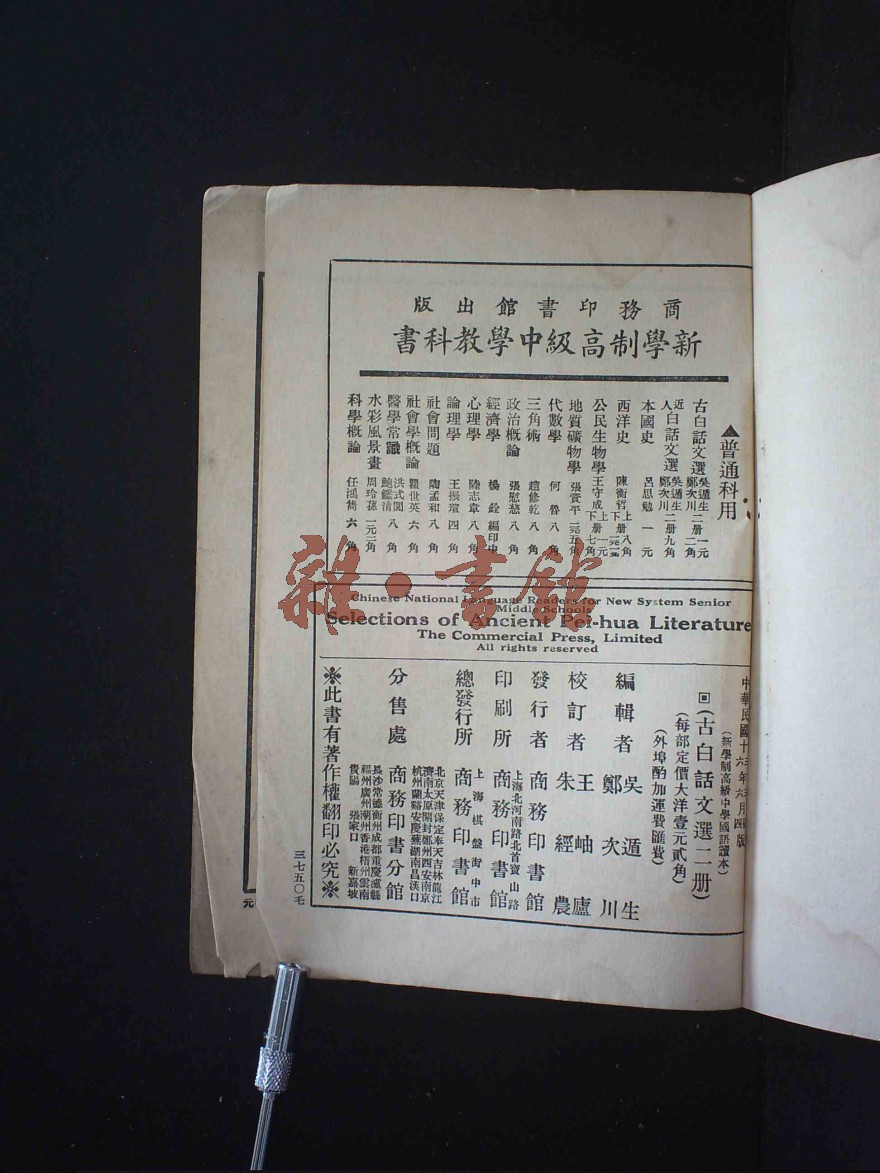 商務印書館出版
新學制高級中學教科書
▲普通科用
古白話文選 吳遁生 鄭次川 二册一元二角
近人白話文選 吳遁生 鄭次川 二册九角
本國史 呂思勉 一元
西洋史 陳衡哲 上册八角 下册
公民生物學 王守成 上一元 下册七角
地質礦物學 張資平 一元五角
代數學 何魯 八角
三角術 趙修乾 八角
政治概論 張慰慈 八角
經濟學 楊銓 編印中
心理學 陸志韋 八角
論理學 王振瑄 四角
社會問題 陶孟和 八角
社會學概論 瞿世英 六角
醫學常識 洪式閭 鮑鑑清 八角
水彩風景畫 周玲蓀 一元二角
科學概論 任鴻雋 六角
雜·書館
Chinese National Language Readers for New System Senior
Middle Schools
Selections of Ancient Pei-hua Literature
The Commercial Press, Limited
All rights reserved
中華民國十六年六月四版
(新學制高級中學國語讀本)
(古白話文選二册)
(每部定價大洋壹元貳角)
(外埠酌加運費匯費)
編輯者 吳遁生 鄭次川
校訂者 王岫廬 朱經農
發行者 商務印書館
印刷所 上海北河南路北首寶山路 商務印書館
總發行所 上海棋盤街中市 商務印書館
分售處 商務印書分館
北京天津保定奉天吉林龍江
濟南太原開封鄭州西安南京
杭州蘭谿安慶蕪湖南昌漢口
長沙常德衡州成都重慶瀘縣
福州廣州潮州香港梧州雲南
貴陽 張家口 新嘉坡
※此書有著作權翻印必究※
三七五〇毛
元